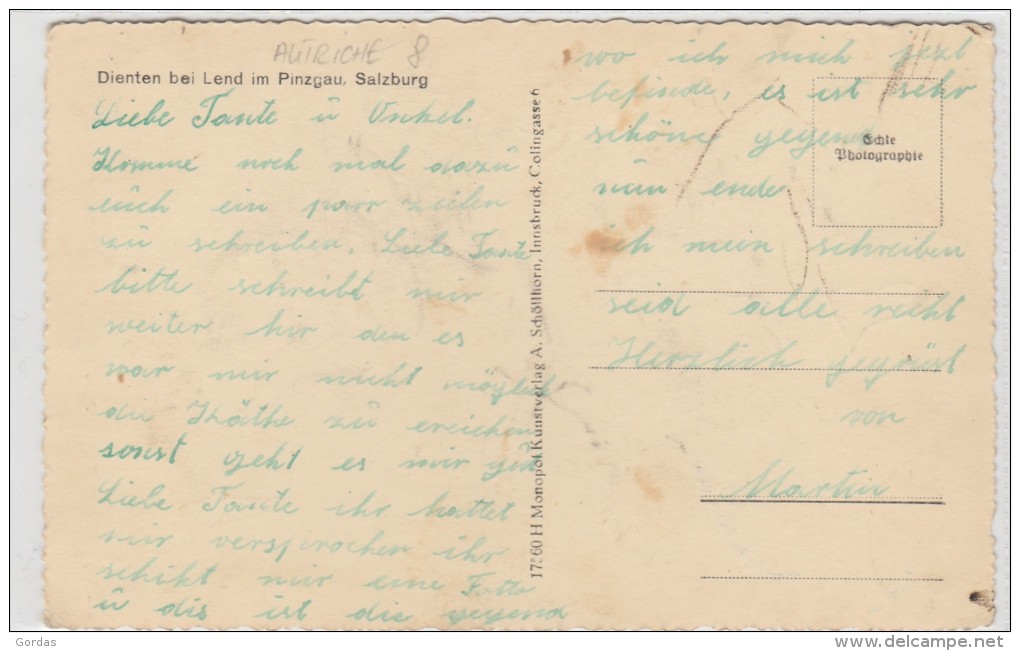 AUTRICHE 8
Dienten bei Lend im Pinzgau, Salzburg
Liebe Tante ü Onkel.
Komme noch mal dazü
eüch ein parr zeilen
zü schreiben. Liebe Tante
bitte schreibt mir
weiter hir den es
war mir nicht möglich
die Käthe zü ereichen
sonst geht es mir güt
Liebe Tante ihr hattet
mir versprochen ihr
schikt mir eine Fotto
ü dis ist die gegend
17560 H Monopol Kunstverlag A. Schöllhorn, Innsbruck, Colingasse 6
wo ich mich jezt
befinde, es ist sehr
schöne gegend
nün ende
ich mein schreiben
seid alle recht
Herzlich gegrüst
von
Martin
Echte
Photographie
Gordas
delcampe.net